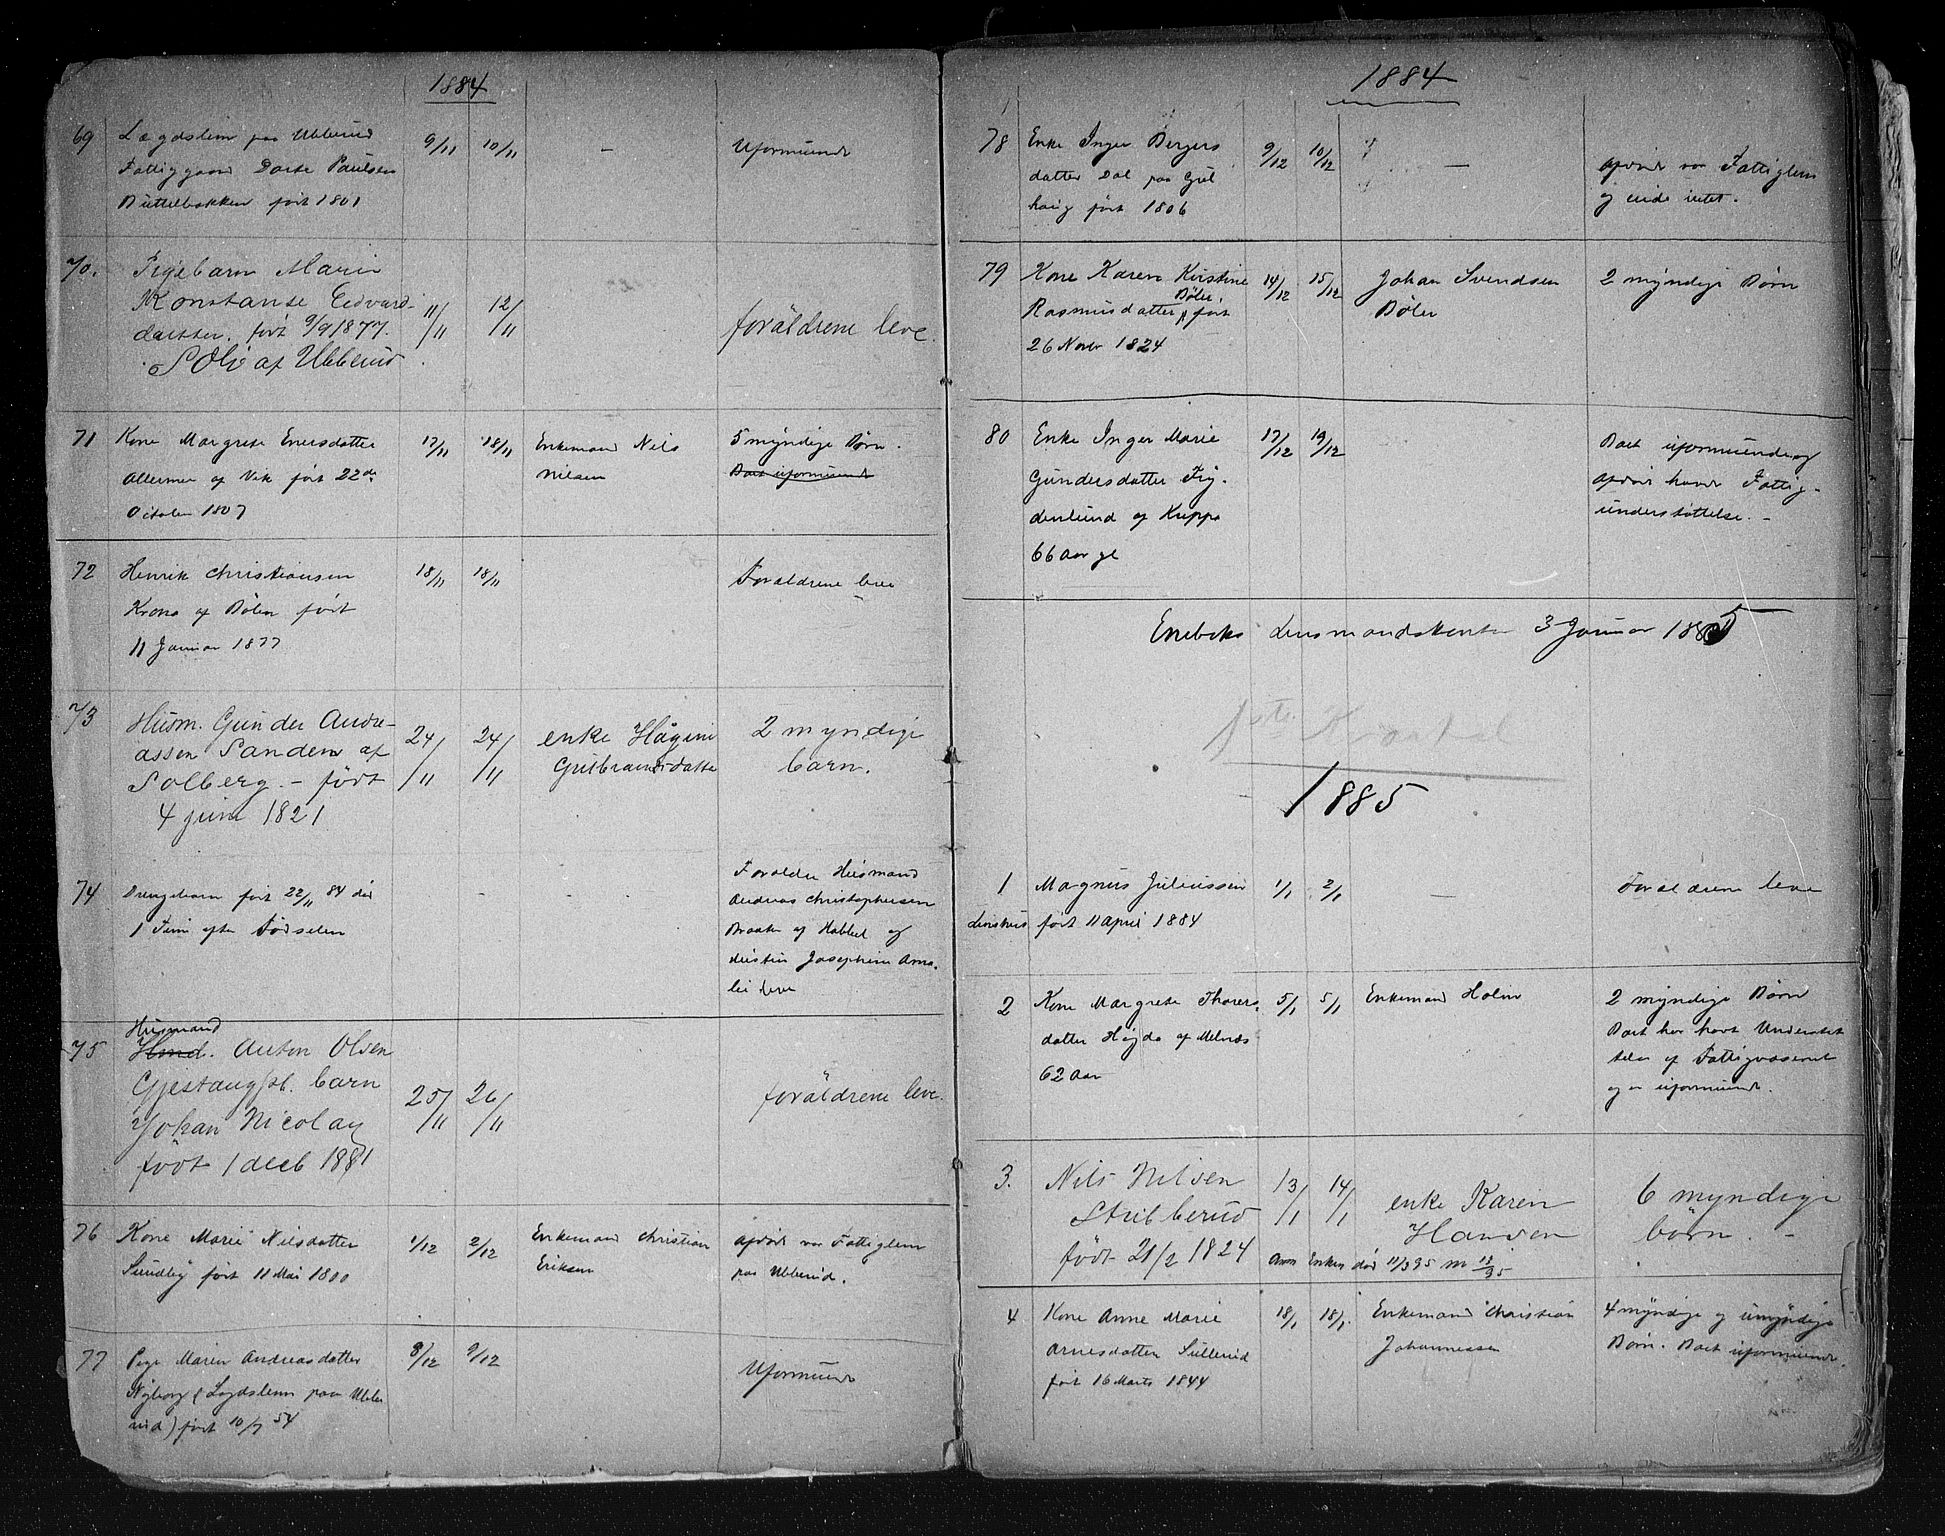 1884
69 Lægdslem paa Ubberud 9/11 10/11 - Uformuende
Fattiggaard Dorte Paulsen
Buttelbakken født 1801
70. Pigebarn Marie
Konstanse Edvard-
datter. født 9/9 1877. 11/11 12/11 forældrene leve.
Solv af Ubberud
71 Kone Margrete Enersdatter 17/11 18/11 Enkemand Nils 5 myndige Børn.
Allermer af Vik født 22de Nilsen Boet uformuende
October 1807
72 Henrik Christiansen 18/11 18/11 Forældrene leve
Krona af Bøler født
11 Januar 1877
73 Husm. Gunder Andre- 24/11 24/11 enke Hågine 2 myndige
assen Sanden af Gulbrandsdatter barn.
Solberg. - født
4 juni 1821
74 Drengebarn født 22/11 84 død - - Forældre Husmand
1 Time efter Fødselen Andreas Christophersen
Braaten af Hobbel og
Hustru Josephine Ama-
lie leve
Husmand
75 Hmd. Anton Olsen
Gjestang pl. barn 25/11 26/11 forældrene leve.
Johan Nicolay
født 1 decb 1881
76 Kone Marie Nilsdatter 1/12 2/12 Enkemand Christian afdøde var Fattiglem
Sundby født 11 Mai 1800 Eriksen paa Ubberud.
77 Pige Maren Andreasdatter 8/12 9/12 Uformuende
Nyborg (Lægdslem paa Ubbe
rud) født 10/7 54
1884
78 Enke Inger Bergers 9/12 10/12 - afdøde var Fattiglem
datter Dal paa Gul og eiede intet.
haug født 1806
79 Kone Karen Kirstine 14/12 15/12 Johan Svendsen 2 myndige Børn
Bøler
Rasmusdatter født Bøler
26 Novbr 1824
80 Enke Inger Marie 17/12 19/12 Boet uformuende og
Gundersdatter Fry- afdøde havde Fattig-
denlund af Krippa understøttelse. -
66 Aar gl
Enebaks Lensmandskontor 3 Januar 1885
1ste Kvartal
1885
1 Magnus Juliussen 1/1 2/1 - Forældrene leve
født 11 April 1884
2 Kone Margrete Thorers- 5/1 5/1 Enkemand Holm 2 myndige Børn
datter Højda af Melnæs Boet har havt Understøt
62 Aar telse af Fattigvæsenet
og er uformuende.
3. Nils Nilsen 13/1 14/1 enke Karen 6 myndige
Stribberud Hansen børn. -
født 21/2 1824 Anm Enken død 11/3 95 m 13/3 95
4 Kone Anne Marie 18/1 18/1. Enkemand Christian 4 myndige og umyndige
Arnesdatter Sullerud Johannessen Børn. Boet uformuende.
født 16 Marts 1844